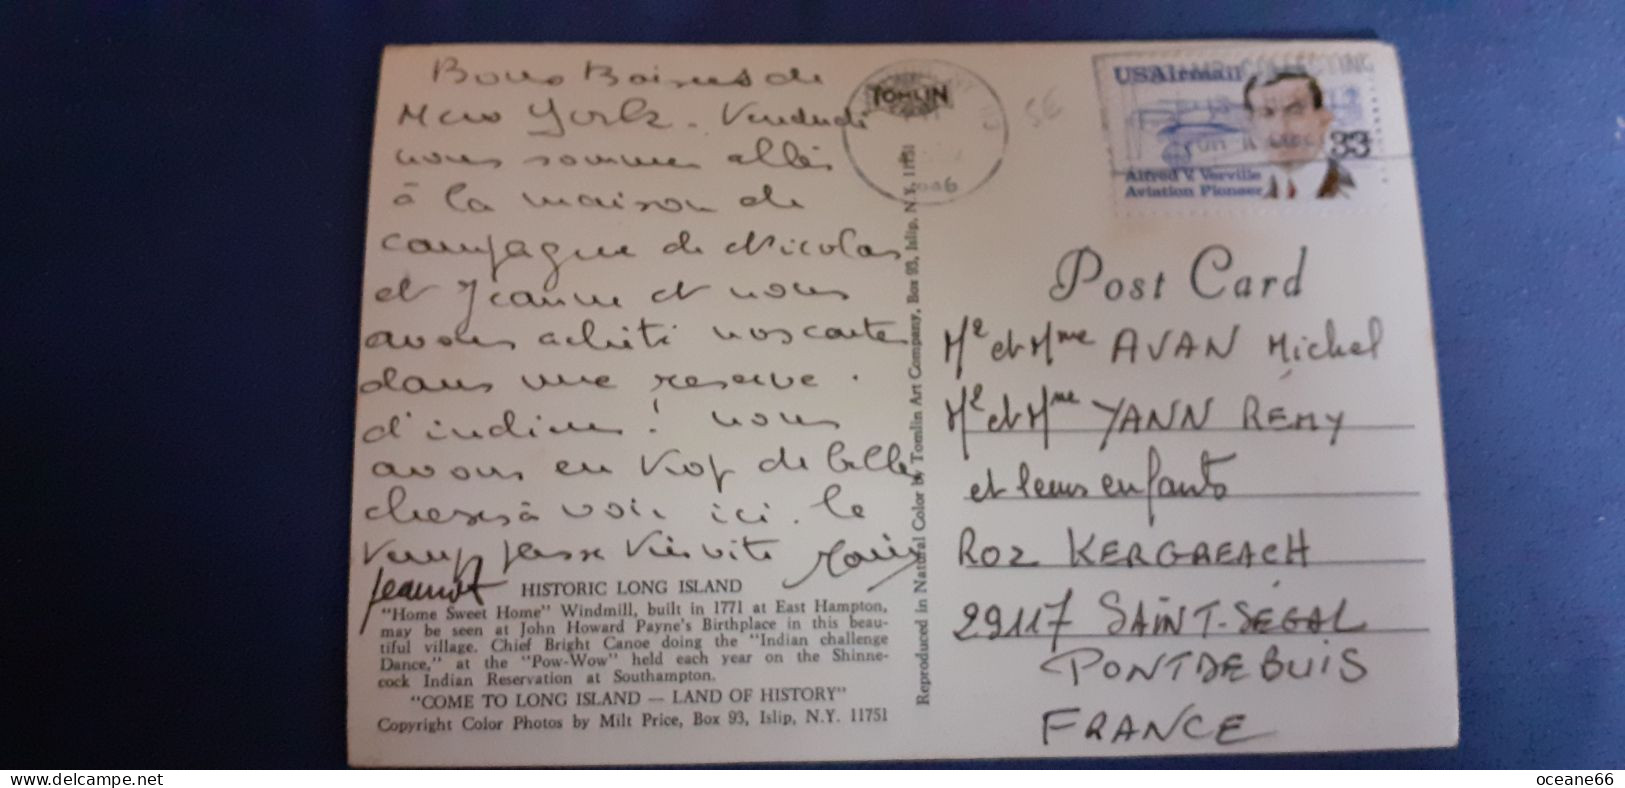 Bons Baisers de
New York. Vendredi
nous sommes allés
à la maison de
campagne de Nicolas
et Jeanne et nous
avons acheté nos cartes
dans une reserve
d'indiens ! nous
avons en trop de belles
choses à voir ici. le
temps passe très vite
Jeannot
HISTORIC LONG ISLAND
"Home Sweet Home" Windmill, built in 1771 at East Hampton,
may be seen at John Howard Payne's Birthplace in this beau-
tiful village. Chief Bright Canoe doing the "Indian challenge
Dance," at the "Pow-Wow" held each year on the Shinne-
cock Indian Reservation at Southampton.
"COME TO LONG ISLAND — LAND OF HISTORY"
Copyright Color Photos by Milt Price, Box 93, Islip, N.Y. 11751
TOMLIN
Reproduced in Natural Color by Tomlin Art Company, Box 93, Islip, N.Y. 11751
USAirmail
33
Alfred V. Verville
Aviation Pioneer
Post Card
Mr et Mme AVAN Michel
Mr et Mme YANN REMY
et leurs enfants
ROZ KERGREACH
29117 SAINT-SÉGAL
PONT DE BUIS
FRANCE
www.delcampe.net
oceane66